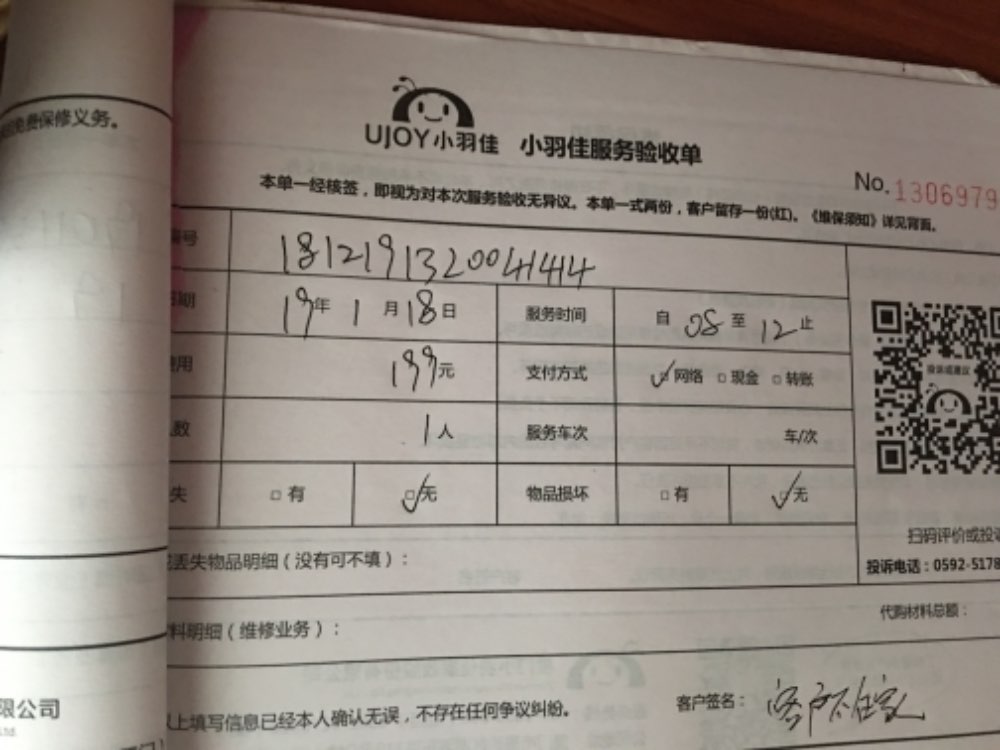 免费保修义务。
UJOY小羽佳 小羽佳服务验收单
No.1306979
本单一经核签，即视为对本次服务验收无异议。本单一式两份，客户留存一份(红)。《维保须知》详见背面。
号 181219132004144
期 19年1月18日 服务时间 自08至12止
用 199元 支付方式 网络 现金 转账
数 1人 服务车次 车/次
失 有 无 物品损坏 有 无
投诉或建议
扫码评价或投诉
投诉电话：0592-5178
丢失物品明细（没有可不填）：
代购材料总额：
料明细（维修业务）：
限公司
以上填写信息已经本人确认无误，不存在任何争议纠纷。
客户签名：客户不在家